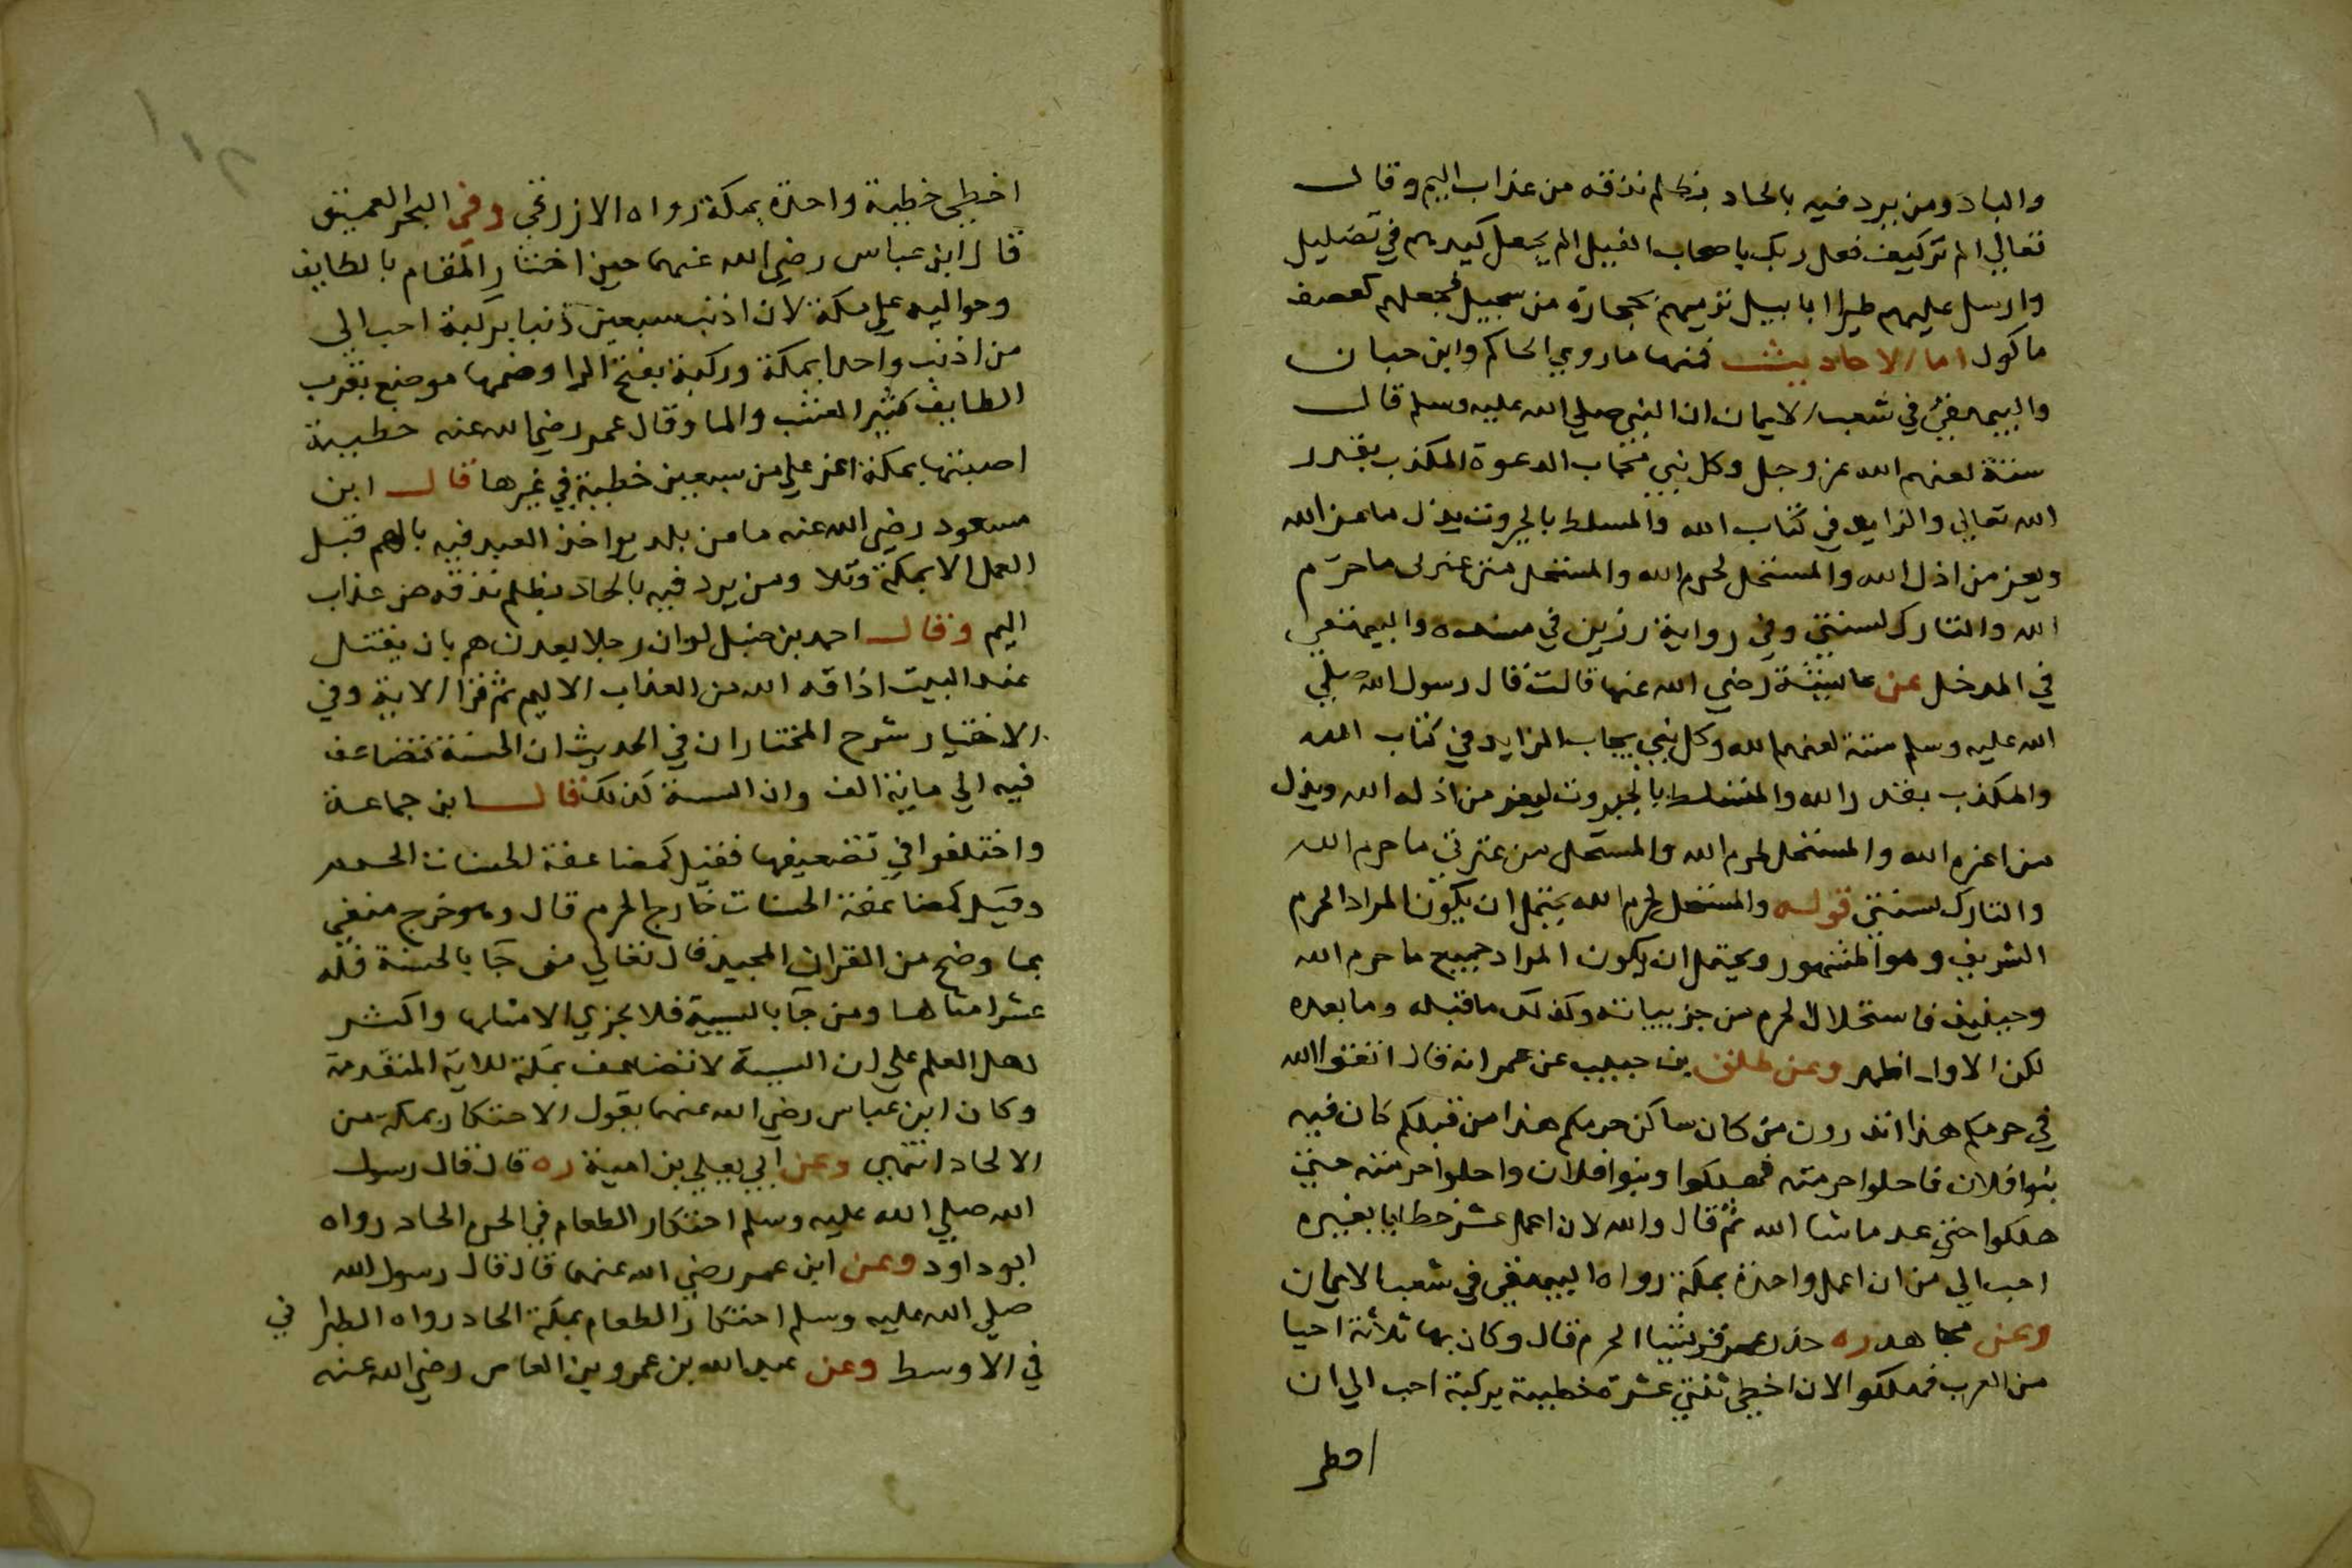 والباد ومن يرد فيه بالحاد بظلم نذقه من عذاب اليم وقال
تعالي الم تركيف فعل ربك باصحاب الفيل الم يجعل كيدهم في تضليل
وارسل عليهم طيرا ابابيل ترميهم بحجارة من سجيل فجعلهم كعصف
ماكول اما الاحاديث فمنها ما روي الحاكم وابن حبان
والبيهقي في شعب الايمان ان النبي صلي الله عليه وسلم قال
ستة لعنهم الله عز وجل وكل نبي مجاب الدعوة المكذب بقدر
الله تعالي والزايد في كتاب الله والمسلط بالجبروت يذل ما عز الله
ويعز من اذل الله والمستحل لحرم الله والمستحل من عترتى ما حرّم
الله والتارك لسنتي وفي رواية رزين في مسنده والبيهقي
في المدخل عن عايشة رضي الله عنها قالت قال رسول الله صلي
الله عليه وسلم ستة لعنهم الله وكل نبي يجاب الزايد في كتاب الله
والمكذب بقدر الله والمتسلط بالجبروت ليعز من اذله الله ويذل
من اعزه الله والمستحل لحرم الله والمستحل من عترتي ما حرم الله
والتارك لسنتي قوله والمستحل لحرم الله يحتمل ان يكون المراد الحرم
الشريف وهو المشهور ويحتمل ان يكون المراد جميع ما حرم الله
وحينيذ فاستحلال الحرم من جزيياته وكذلك ما قبله وما بعده
لكن الاول اظهر وعن طلق بن حبيب عن عمر انه قال اتقوا الله
في حرمكم هذا اتدرون من كان ساكن حرمكم هذا من قبلكم كان فيه
بنوا فلان فاحلوا حرمته فهلكوا وبنوا فلان واحلوا حرمته حتي
هلكوا حتي عد ما شا الله ثم قال والله لان اعمل عشر خطايا بغيره
احب الي من ان اعمل واحدة بمكة رواه البيهقي في شعب الايمان
وعن مجاهد ره حذر عمر قريشا الحرم قال وكان بها ثلاثة احيا
من العرب فهلكوا لان اخطى ثنتي عشرة خطيية بركبة احب الي ان
اخطى
اخطى خطية واحدة بمكة رواه الازرقي وفي البحر العميق
قال ابن عباس رضي الله عنهما حين اختار المقام بالطايف
وحواليه علي مكة لان اذنب سبعين ذنبا بركبة احب الى
من اذنب واحدا بمكة وركبة بفتح الرا وضمها موضع بقرب
الطايف كثير العشب والما وقال عمر رضي الله عنه خطيية
اصبتها بمكة اعز علي من سبعين خطية في غيرها قال ابن
مسعود رضي الله عنه ما من بلد يواخذ العبد فيه بالهم قبل
العمل الا بمكة وتلا ومن يرد فيه بالحاد بظلم نذقه من عذاب
اليم وقال احمد بن حنبل لو ان رجلا بعدن هم بان يقتل
عند البيت اذاقه الله من العذاب الاليم ثم قرا الاية وفي
الاختيار شرح المختار ان في الحديث ان الحسنة تتضاعف
فيه الي ماية الف وان السية كذلك قال ابن جماعة
واختلفوا في تضعيفها فقيل كمضاعفة الحسنات الحرم
وقيل كمضاعفة الحسنات خارج الحرم قال وهو خرج منفي
بما وضح من القران المجيد قال تعالي من جا بالحسنة فله
عشر امثالها ومن جا بالسيية فلا يجزي الا مثلها واكثر
اهل العلم علي ان السية لا تتضاعف بمكة للاية المتقدمة
وكان ابن عباس رضي الله عنهما يقول الاحتكار بمكة من
الالحاد انتهي وعن ابي يعلي بن امية ره قال قال رسول
الله صلي الله عليه وسلم احتكار الطعام في الحرم الحاد رواه
ابو داود وعن ابن عمر رضي الله عنهما قال قال رسول الله
صلي الله عليه وسلم احتكار الطعام بمكة الحاد رواه الطبرا ني
في الاوسط وعن عبد الله بن عمرو بن العاص رضي الله عنه